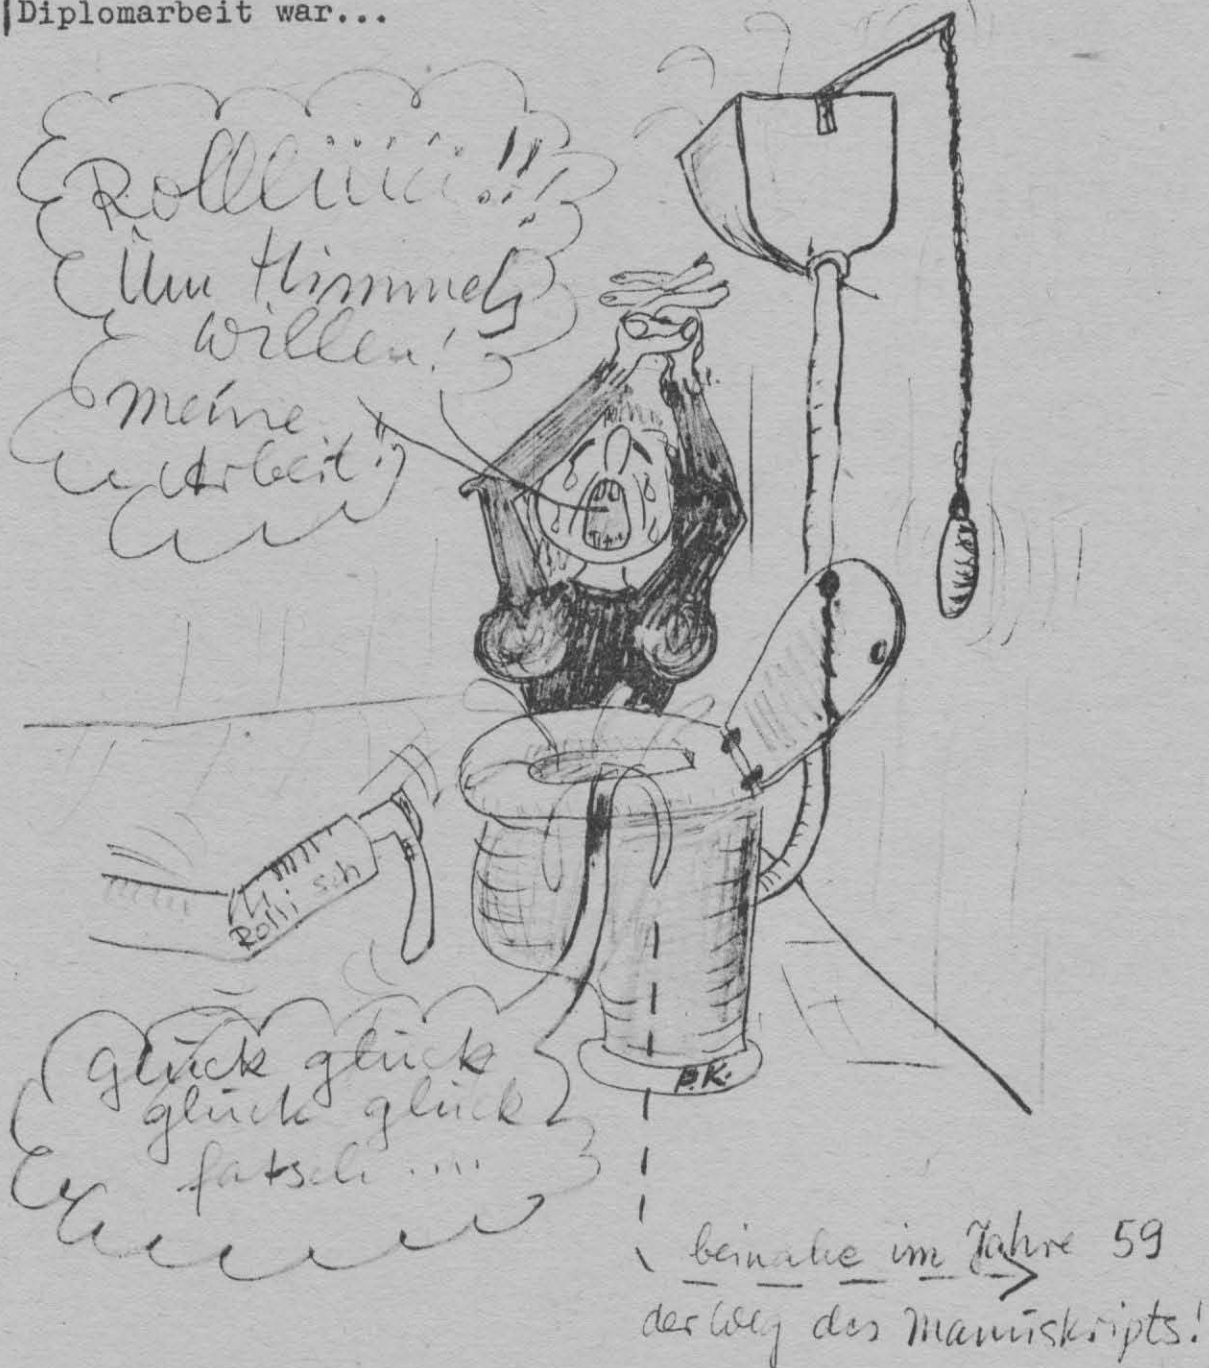 Diplomarbeit war...
Rollliiiii!!!
Um Himmels
willen!
meine
Arbeit!!
Rolli sch
glück glück
glück glück
fatsch....
P.K.
beinahe im Jahre 59
der Weg des Manuskripts!